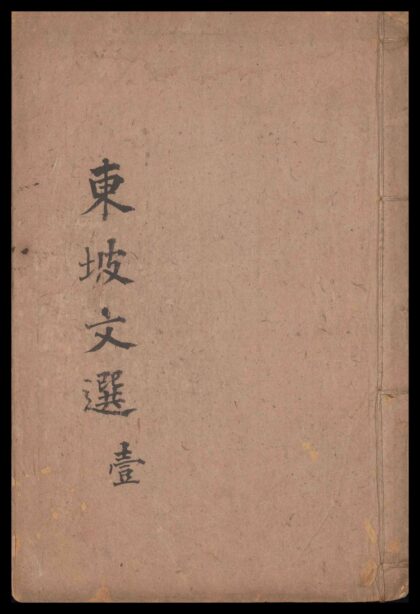 東坡文選
壹